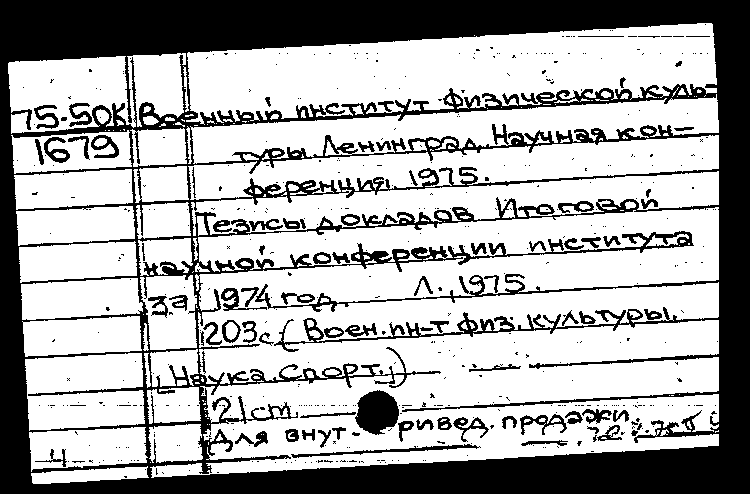 75-50К Военный институт физической куль-
1679 туры. Ленинград. Научная кон-
ференция. 1975.
Тезисы докладов Итоговой
научной конференции института
за 1974 год. Л., 1975.
203с. (Воен. ин-т физ. культуры.
[Наука. Спорт.])
21 cm.
Для внут- привед. продажи
4